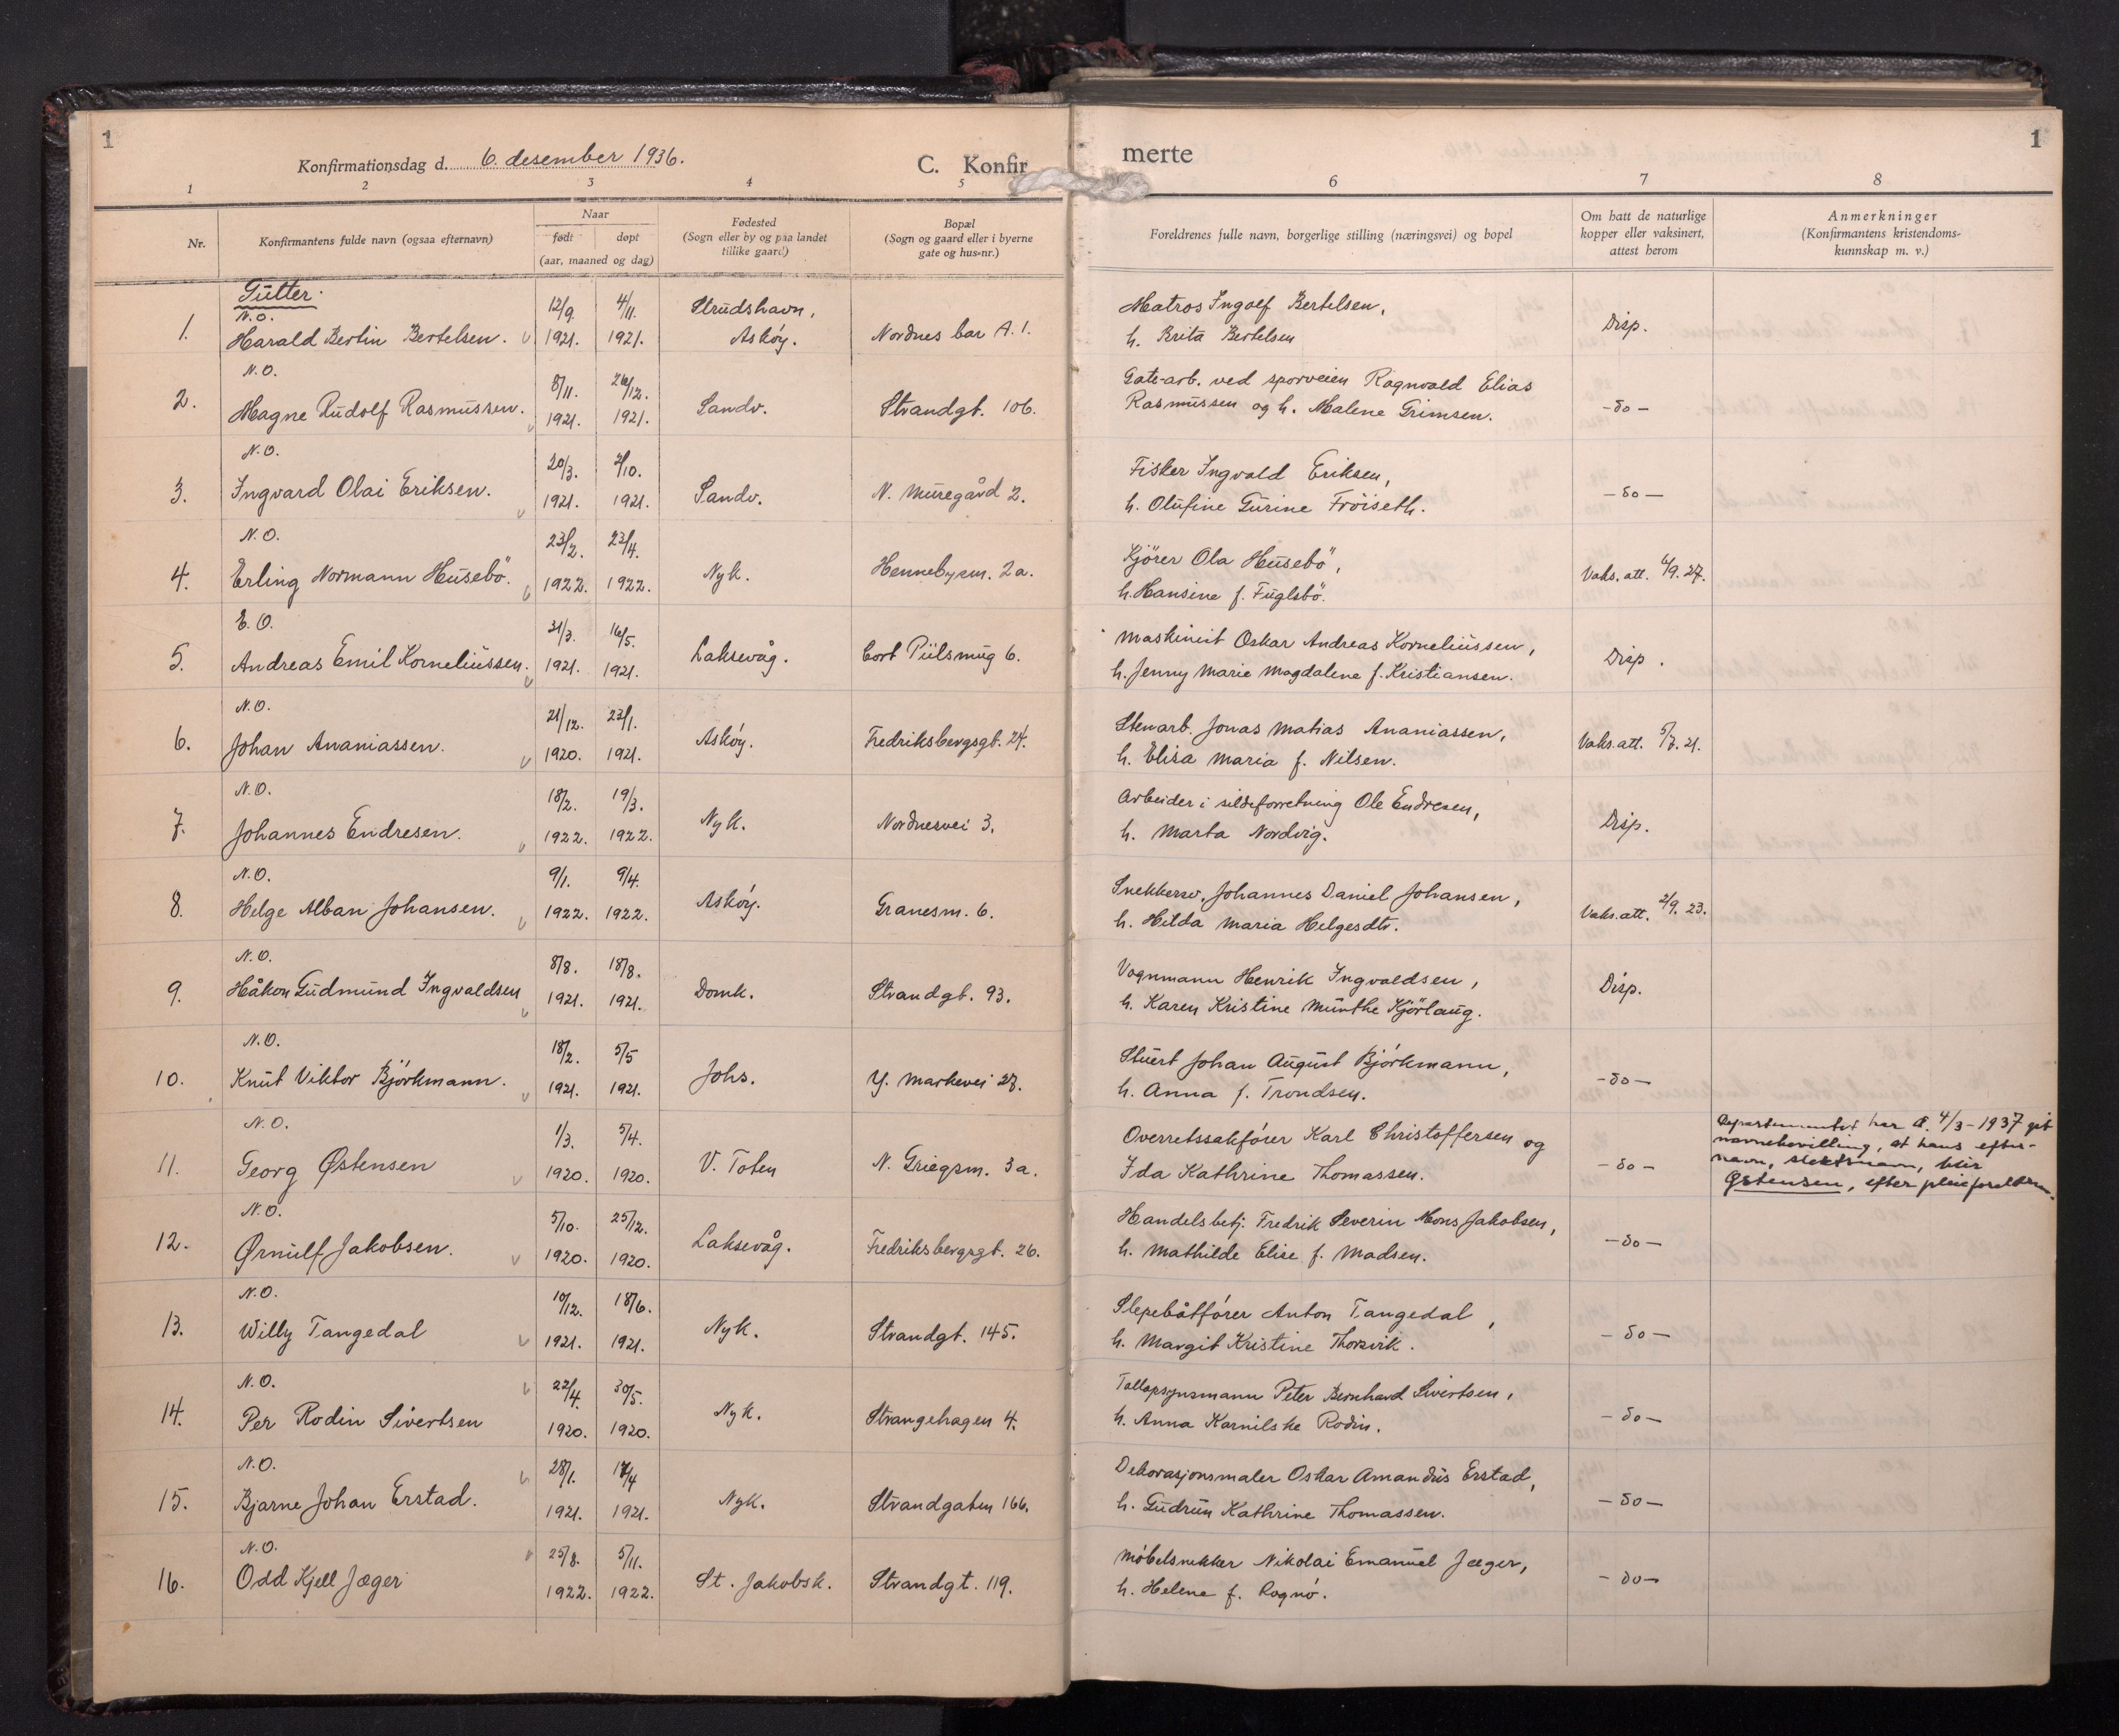 1
Konfirmationsdag d. 6. desember 1936.
C. Konfir
merte
1
1 2 3 4 5 6 7 8
Nr.
Konfirmantens fulde navn (ogsaa efternavn)
Naar
født døpt
(aar, maaned og dag)
Fødested
(Sogn eller by og paa landet
tillike gaard)
Bopæl
(Sogn og gaard eller i byerne
gate og hus-nr.)
Foreldrenes fulle navn, borgerlige stilling (næringsvei) og bopel
Om hatt de naturlige
kopper eller vaksinert,
attest herom
Anmerkninger
(Konfirmantens kristendoms-
kunnskap m. v.)
Gutter.
N.O. 12/9. 4/11. Strudshavn, Matros Ingolf Bertelsen,
1. Harald Bertin Bertelsen. 1921. 1921. Askøy. Nordnes bar A. 1. h. Brita Bertelsen Disp.
N.O. 8/11. 26/12. Gate-arb. ved sporveien Ragnvald Elias
2. Magne Rudolf Rasmussen. 1921. 1921. Sandv. Strandgt. 106. Rasmussen og h. Malene Grimsen. -do-
N.O. 20/3. 2/10. Fisker Ingvald Eriksen,
3. Ingvard Olai Eriksen. 1921. 1921. Sandv. N. Muregård 2. h. Olufine Gurine Fröiseth. -do-
N.O. 23/2. 23/4. Kjörer Ola Husebö,
4. Erling Normann Husebö. 1922. 1922. Nyk. Hennebysm. 2a. h. Hansine f. Fuglsbö. Vaks. att. 4/9. 27.
E.O. 31/3. 16/5. Maskinist Oskar Andreas Korneliussen,
5. Andreas Emil Korneliussen. 1921. 1921. Laksevåg. Cort Piilsmug 6. h. Jenny Marie Magdalene f. Kristiansen. Disp.
N.O. 21/12. 23/1. Stenarb. Jonas Matias Ananiassen,
6. Johan Ananiassen. 1920. 1921. Askøy. Fredriksbergsgt. 24. h. Elisa Maria f. Nilsen. Vaks. att. 5/7. 21.
N.O. 18/2. 19/3. Arbeider i sildeforretning Ole Endresen,
7. Johannes Endresen. 1922. 1922. Nyk. Nordnesvei 3. h. Marta Nordvig. Disp.
N.O. 9/1. 9/4. Snekkersv. Johannes Daniel Johansen,
8. Helge Alban Johansen. 1922. 1922. Askøy. Granesm. 6. h. Hilda Maria Helgesdtr. Vaks. att. 2/9. 23.
N.O. 8/8. 18/8. Vognmann Henrik Ingvaldsen,
9. Håkon Gudmund Ingvaldsen 1921. 1921. Domk. Strandgt. 93. h. Karen Kristine Munthe Kjörlaug. Disp.
N.O. 18/2. 5/5 Stuert Johan August Björkmann,
10. Knut Viktor Björkmann. 1921. 1921. Johs. Y. Markevei 27. h. Anna f. Trondsen. -do-
N.O. 1/3. 5/4. Overretssakfører Karl Christoffersen og
11. Georg Østensen 1920. 1920. V. Toten N. Griegsm. 3a. Ida Kathrine Thomassen. -do-
Departementet har d. 4/3-1937 git
navnebevilling, at hans efter-
navn, slektsnavn, blir
Østensen, efter pleieforeldrene.
N.O. 5/10. 25/12. Handelsbetj. Fredrik Severin Mons Jakobsen,
12. Ørnulf Jakobsen. 1920. 1920. Laksevåg. Fredriksbergsgt. 26. h. Mathilde Elise f. Madsen. -do-
N.O. 10/12. 18/6. Slepebåtfører Anton Tangedal,
13. Willy Tangedal 1921. 1921. Nyk. Strandgt. 145. h. Margit Kristine Thorsvik. -do-
N.O. 22/4. 30/5. Tollopsynsmann Peter Bernhard Sivertsen,
14. Per Rodin Sivertsen 1920. 1920. Nyk. Strangehagen 4. h. Anna Karnilske Rodin. -do-
N.O. 28/1. 17/4 Dekorasjonsmaler Oskar Amandus Erstad,
15. Bjarne Johan Erstad. 1921. 1921. Nyk. Strandgaten 166. h. Gudrun Kathrine Thomassen. -do-
N.O. 25/8. 5/11. Møbelsnekker Nikolai Emanuel Jæger,
16. Odd Kjell Jæger 1922. 1922. St. Jakobsk. Strandgt. 119. h. Helene f. Rognø. -do-